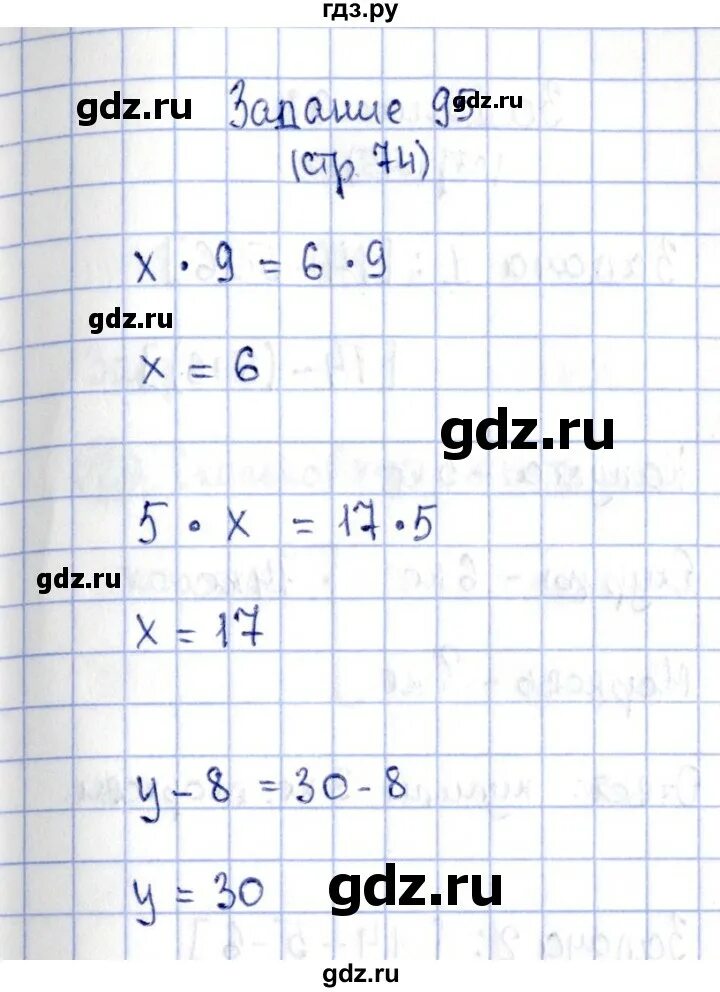 гдз.ру
gdz.ru
Задание 95
gdz.ru
(стр 74)
x · 9 = 6 · 9
gdz.ru
x = 6
gdz.ru
5 · x = 17 · 5
gdz.ru
x = 17
y - 8 = 30 - 8
y = 30
gdz.ru
gdz.ru